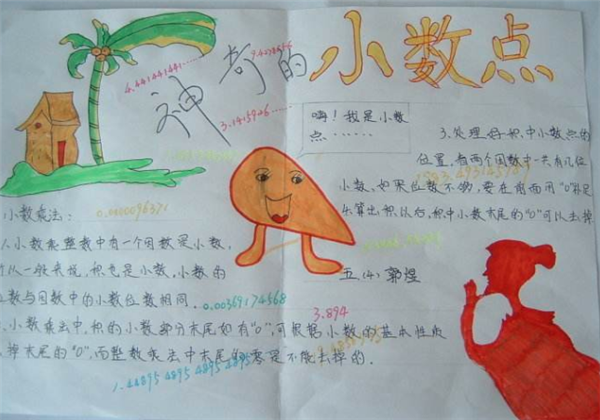 神奇的小数点
4.441441441……
3.1415926……
嗨！我是小数
点……
3.处理好积中小数点的
位置，看两个因数中一共有几位
小数，如果位数不够，要在前面用"0"补足
算出积以后，积中小数末尾的"0"可以去掉
五(4) 郭煜
小数乘法：
0.0000096371
小数乘整数中有一个因数是小数，
所以一般来说，积也是小数，小数的
数与因数中的小数位数相同．
0.00369174568
3.894
小数乘法中，积的小数部分末尾如有"0"，可根据小数的基本性质
掉末尾的"0"，而整数乘法中末尾的零是不能去掉的．
1.44895 4895 4895 4895